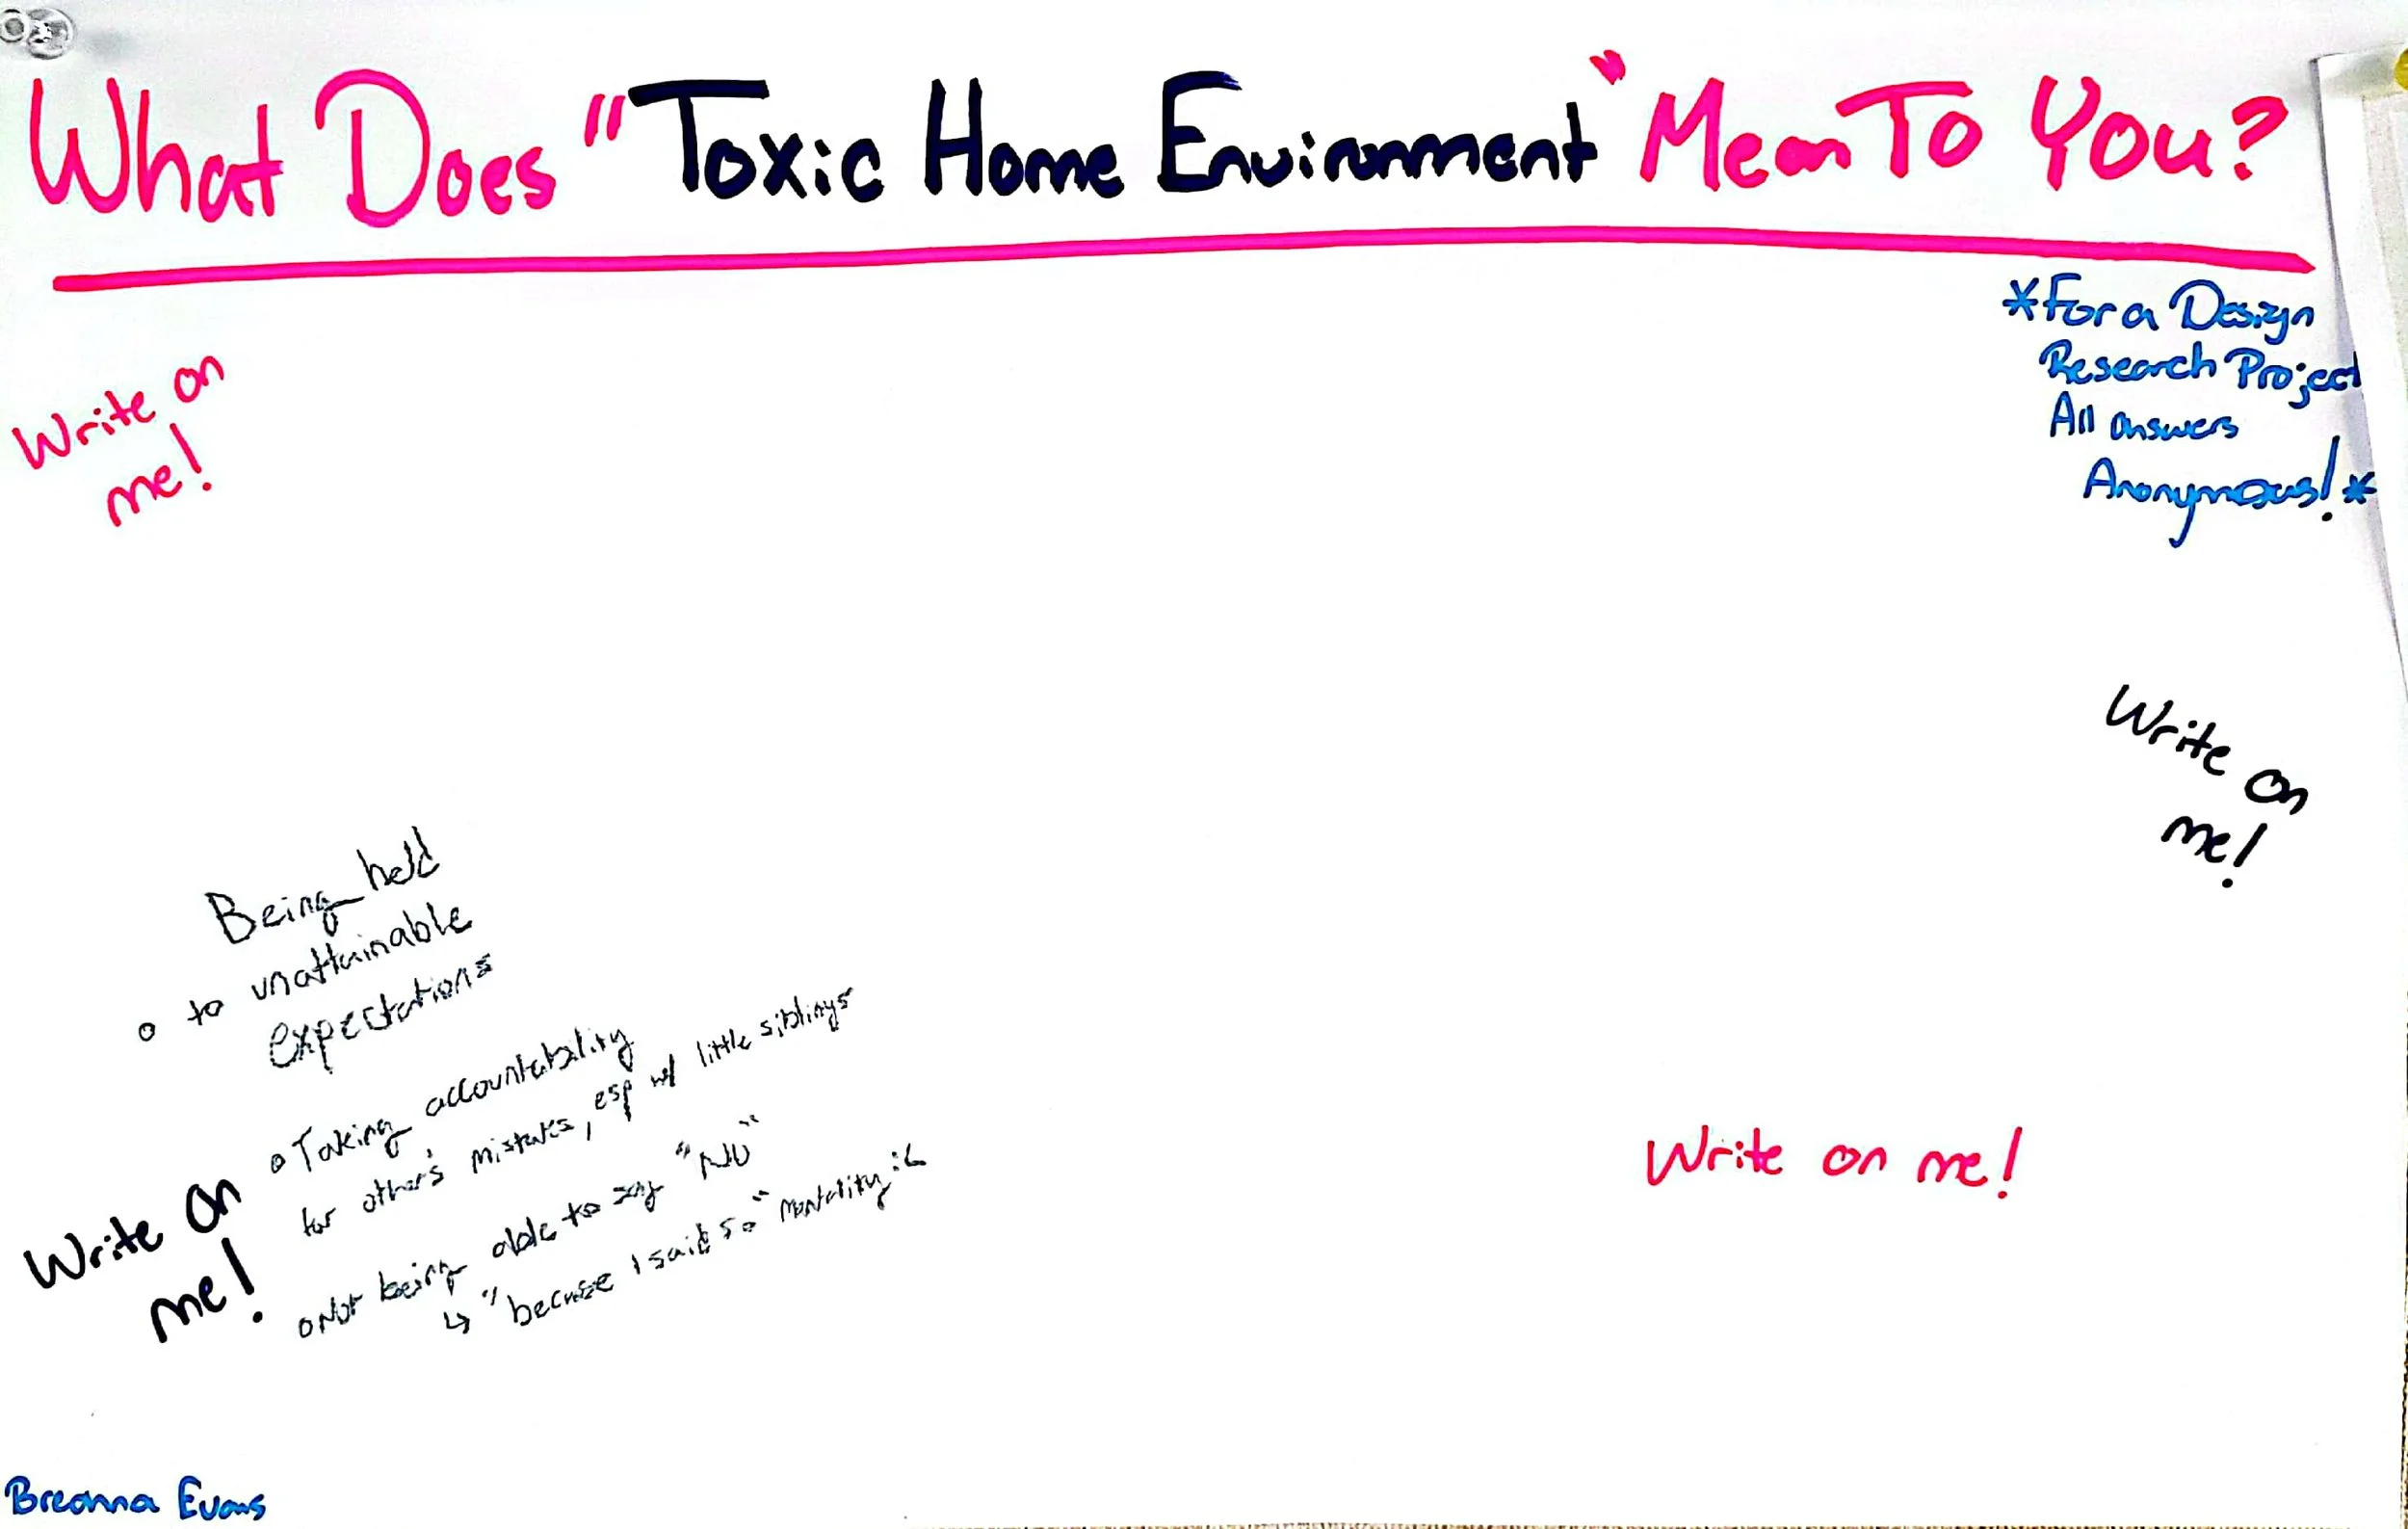 What Does "Toxic Home Environment" Mean To You?
*For a Design
Research Project
All answers
Anonymous!*
Write on
me!
Write on
me!
Being held
o to unattainable
expectations
o Taking accountability
for other's mistakes, esp w/ little siblings
o Not being able to say "NO"
↳ "because I said so" mentality :(
Write on
me!
Write on me!
Breanna Evans